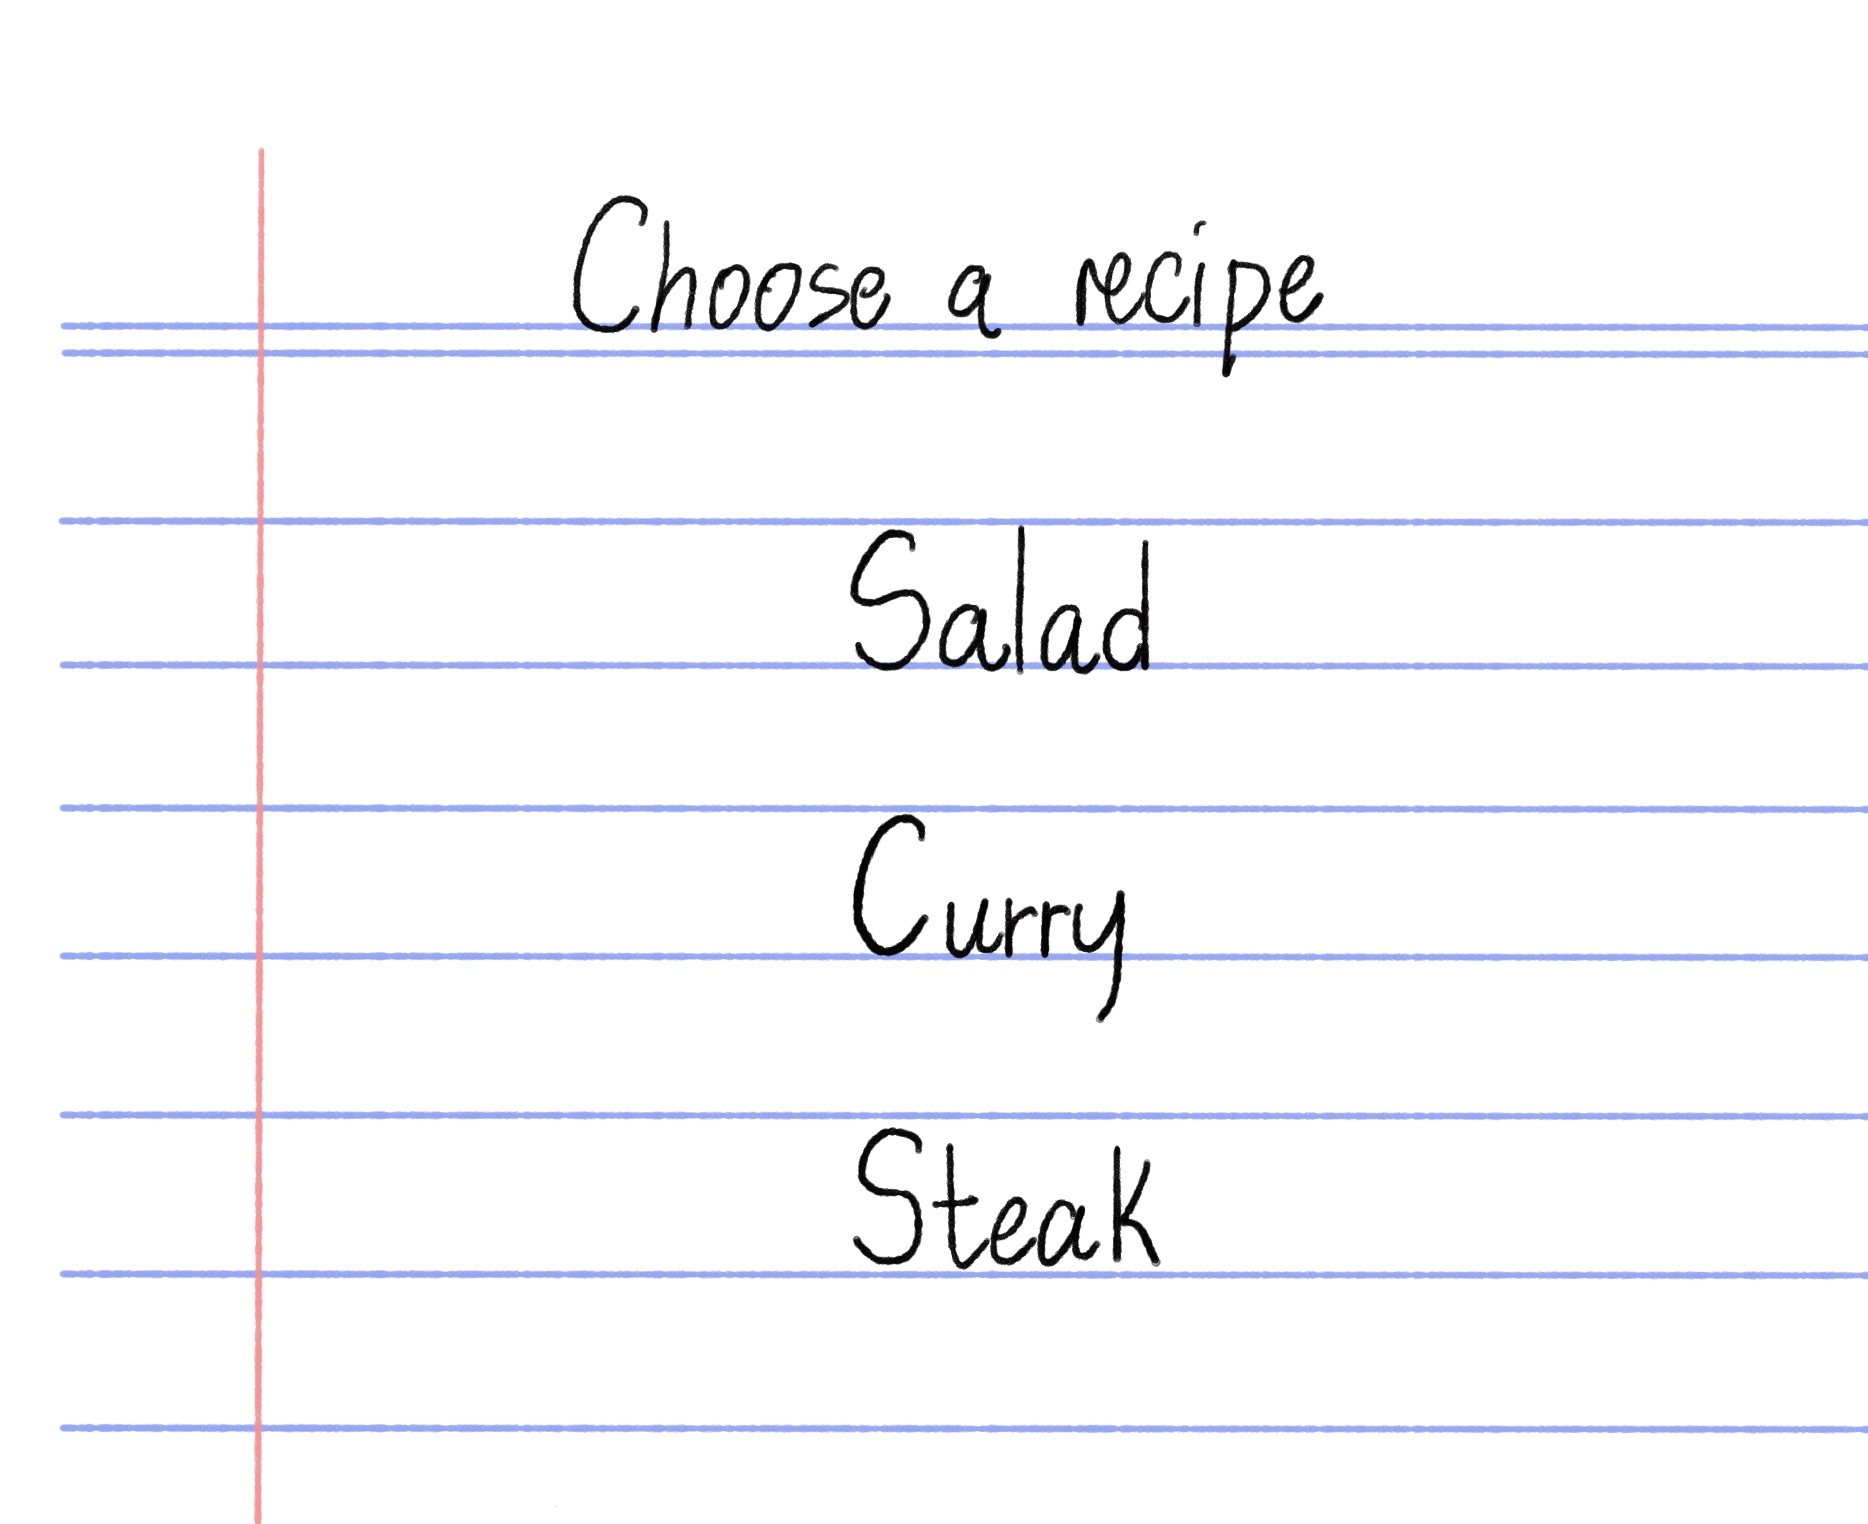 Choose a recipe
Salad
Curry
Steak